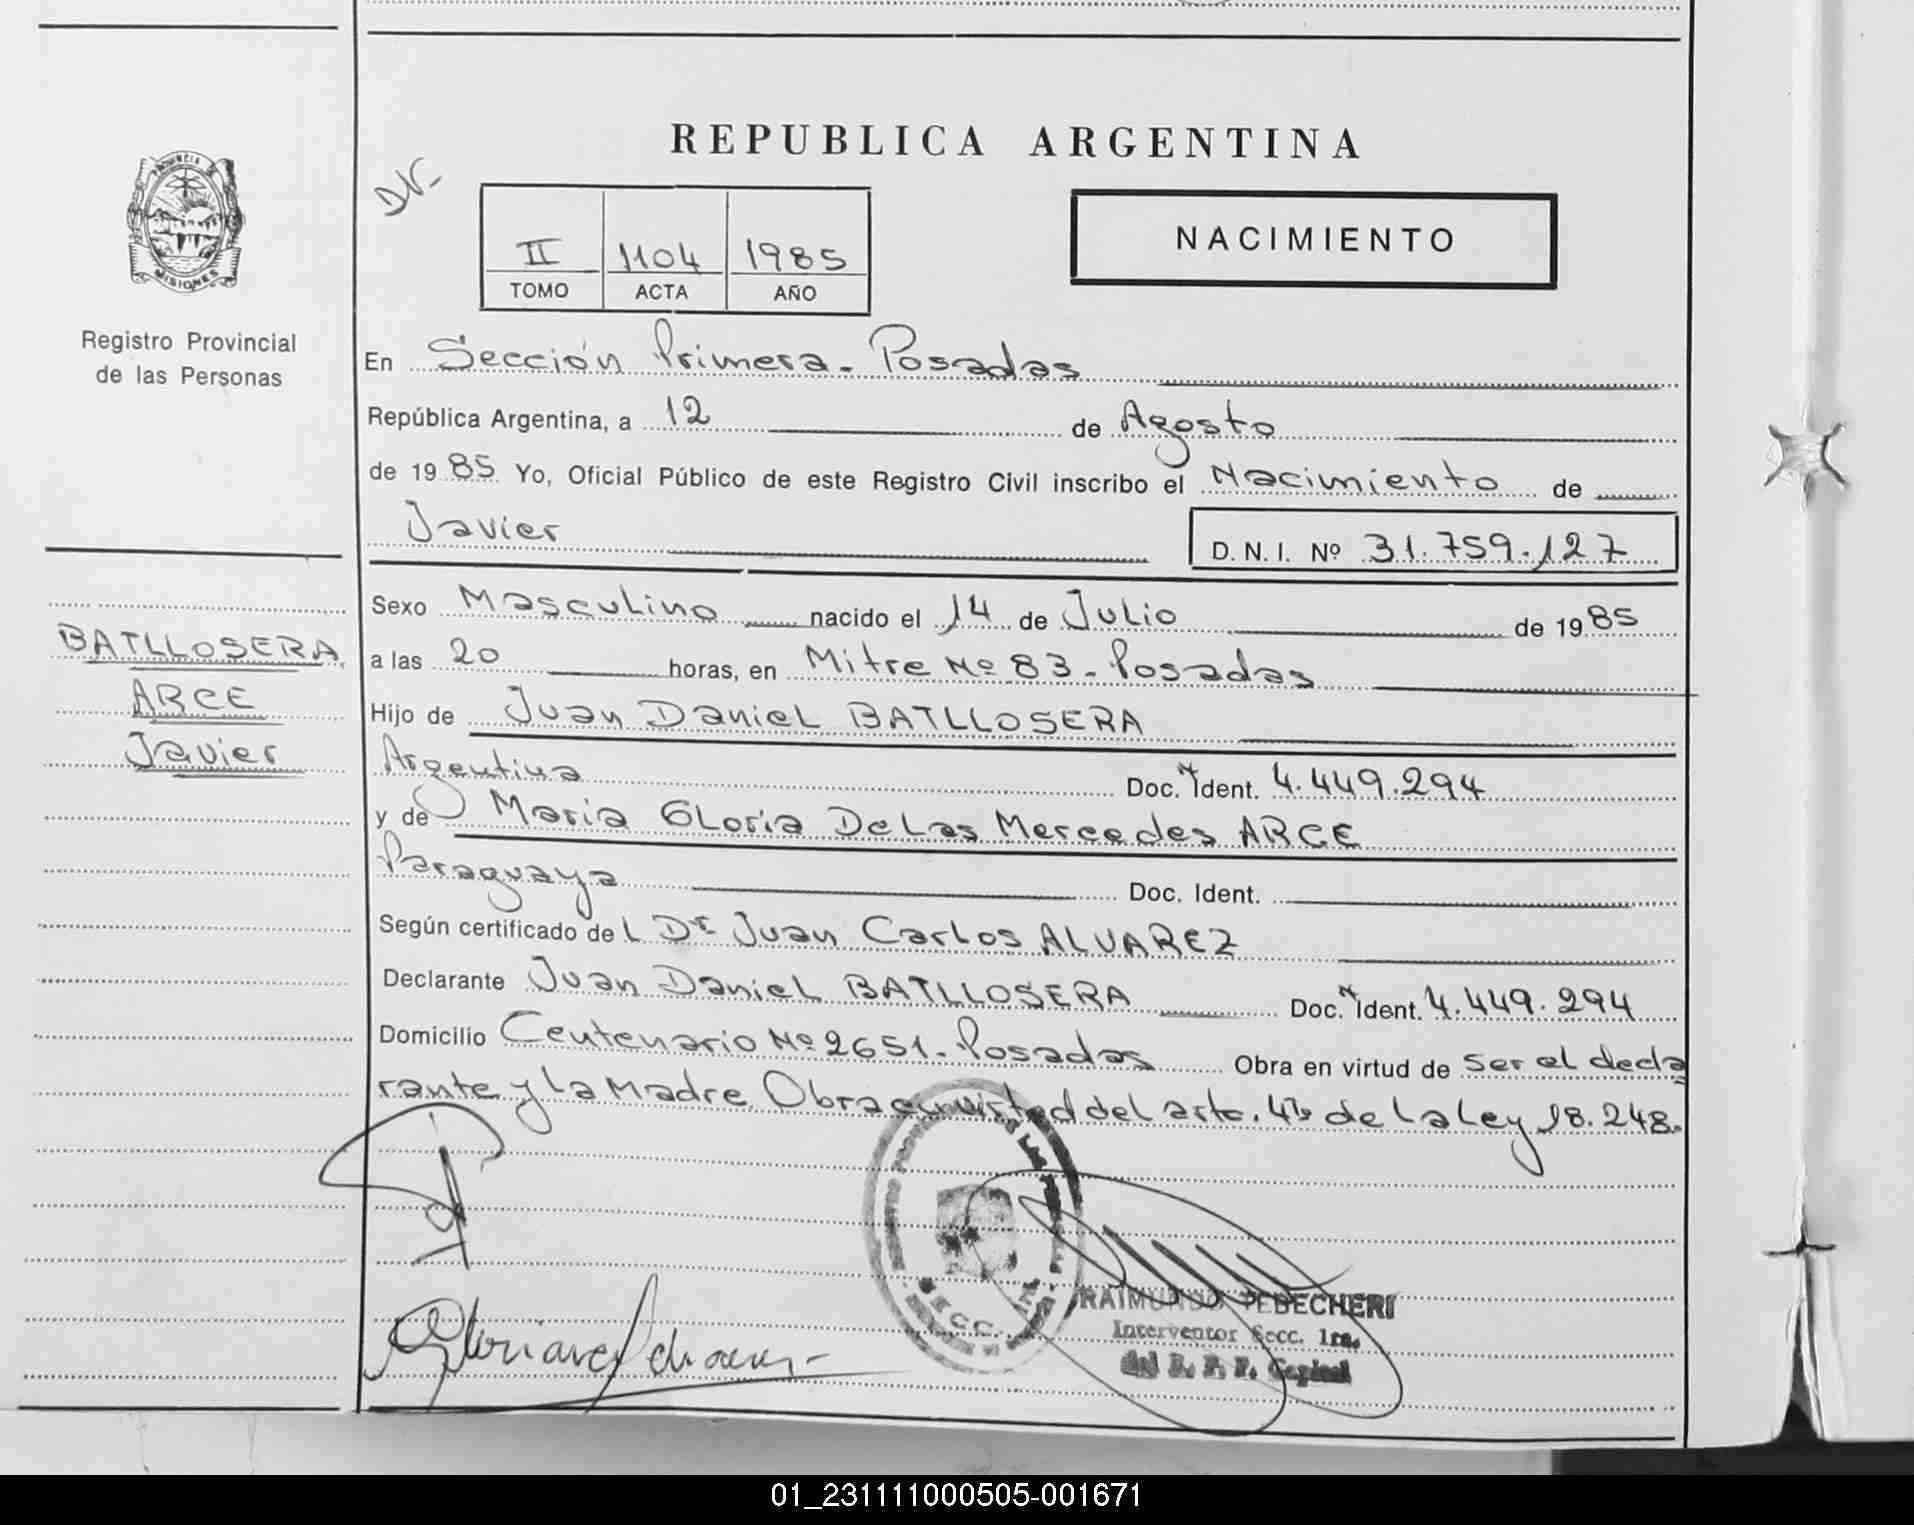 REPUBLICA ARGENTINA
PROVINCIA
MISIONES
Registro Provincial
de las Personas
II 1104 1985
TOMO ACTA AÑO
NACIMIENTO
En Sección Primera - Posadas
República Argentina, a 12 de Agosto
de 1985 Yo, Oficial Público de este Registro Civil inscribo el Nacimiento de
Javier D. N. I. Nº 31.759.127
BATLLOSERA
ARCE
Javier
Sexo Masculino nacido el 14 de Julio de 1985
a las 20 horas, en Mitre Nº 83 - Posadas
Hijo de Juan Daniel BATLLOSERA
Argentina Doc. Ident. 4.449.294
y de Maria Gloria De Las Mercedes ARCE
Paraguaya Doc. Ident.
Según certificado del Dr Juan Carlos ALVAREZ
Declarante Juan Daniel BATLLOSERA Doc. Ident. 4.449.294
Domicilio Centenario Nº 2651 - Posadas Obra en virtud de ser el decla
rante y la Madre. Obra en virtud del arto. de la Ley 18.248.
SECC. 1ra.
RAIMUNDO TEBECHERI
Interventor Secc. 1ra.
del R. P. P. Capital
01_231111000505-001671